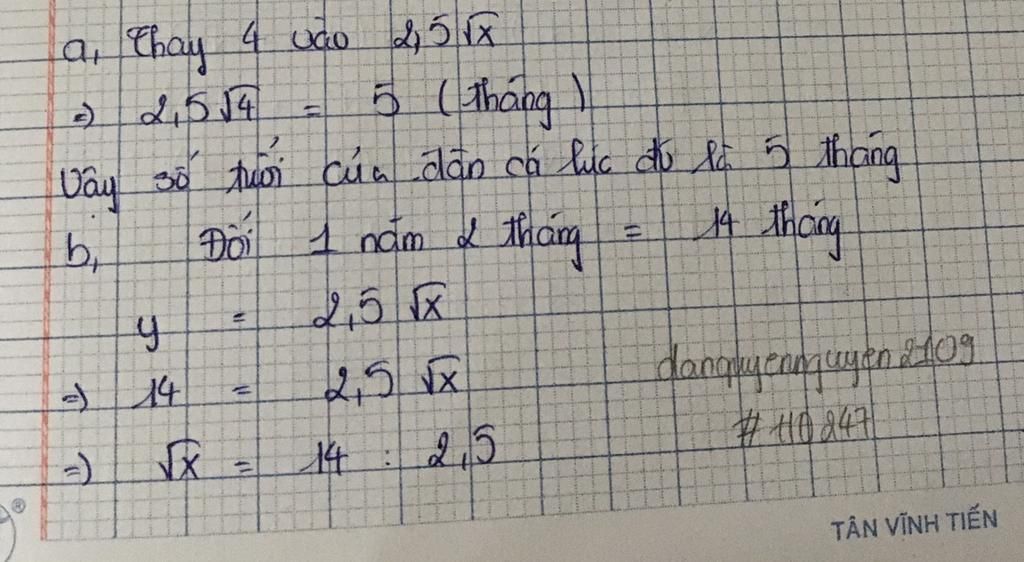 a, Thay 4 vào 2,5√x
=) 2,5√4 = 5 (tháng)
Vậy số tuổi của đàn cá lúc đó là 5 tháng
b, Đổi 1 năm 2 tháng = 14 tháng
y = 2,5 √x
=) 14 = 2,5 √x
danquyennguyen2109
=) √x = 14 : 2,5
#HD247
®
TÂN VĨNH TIẾN